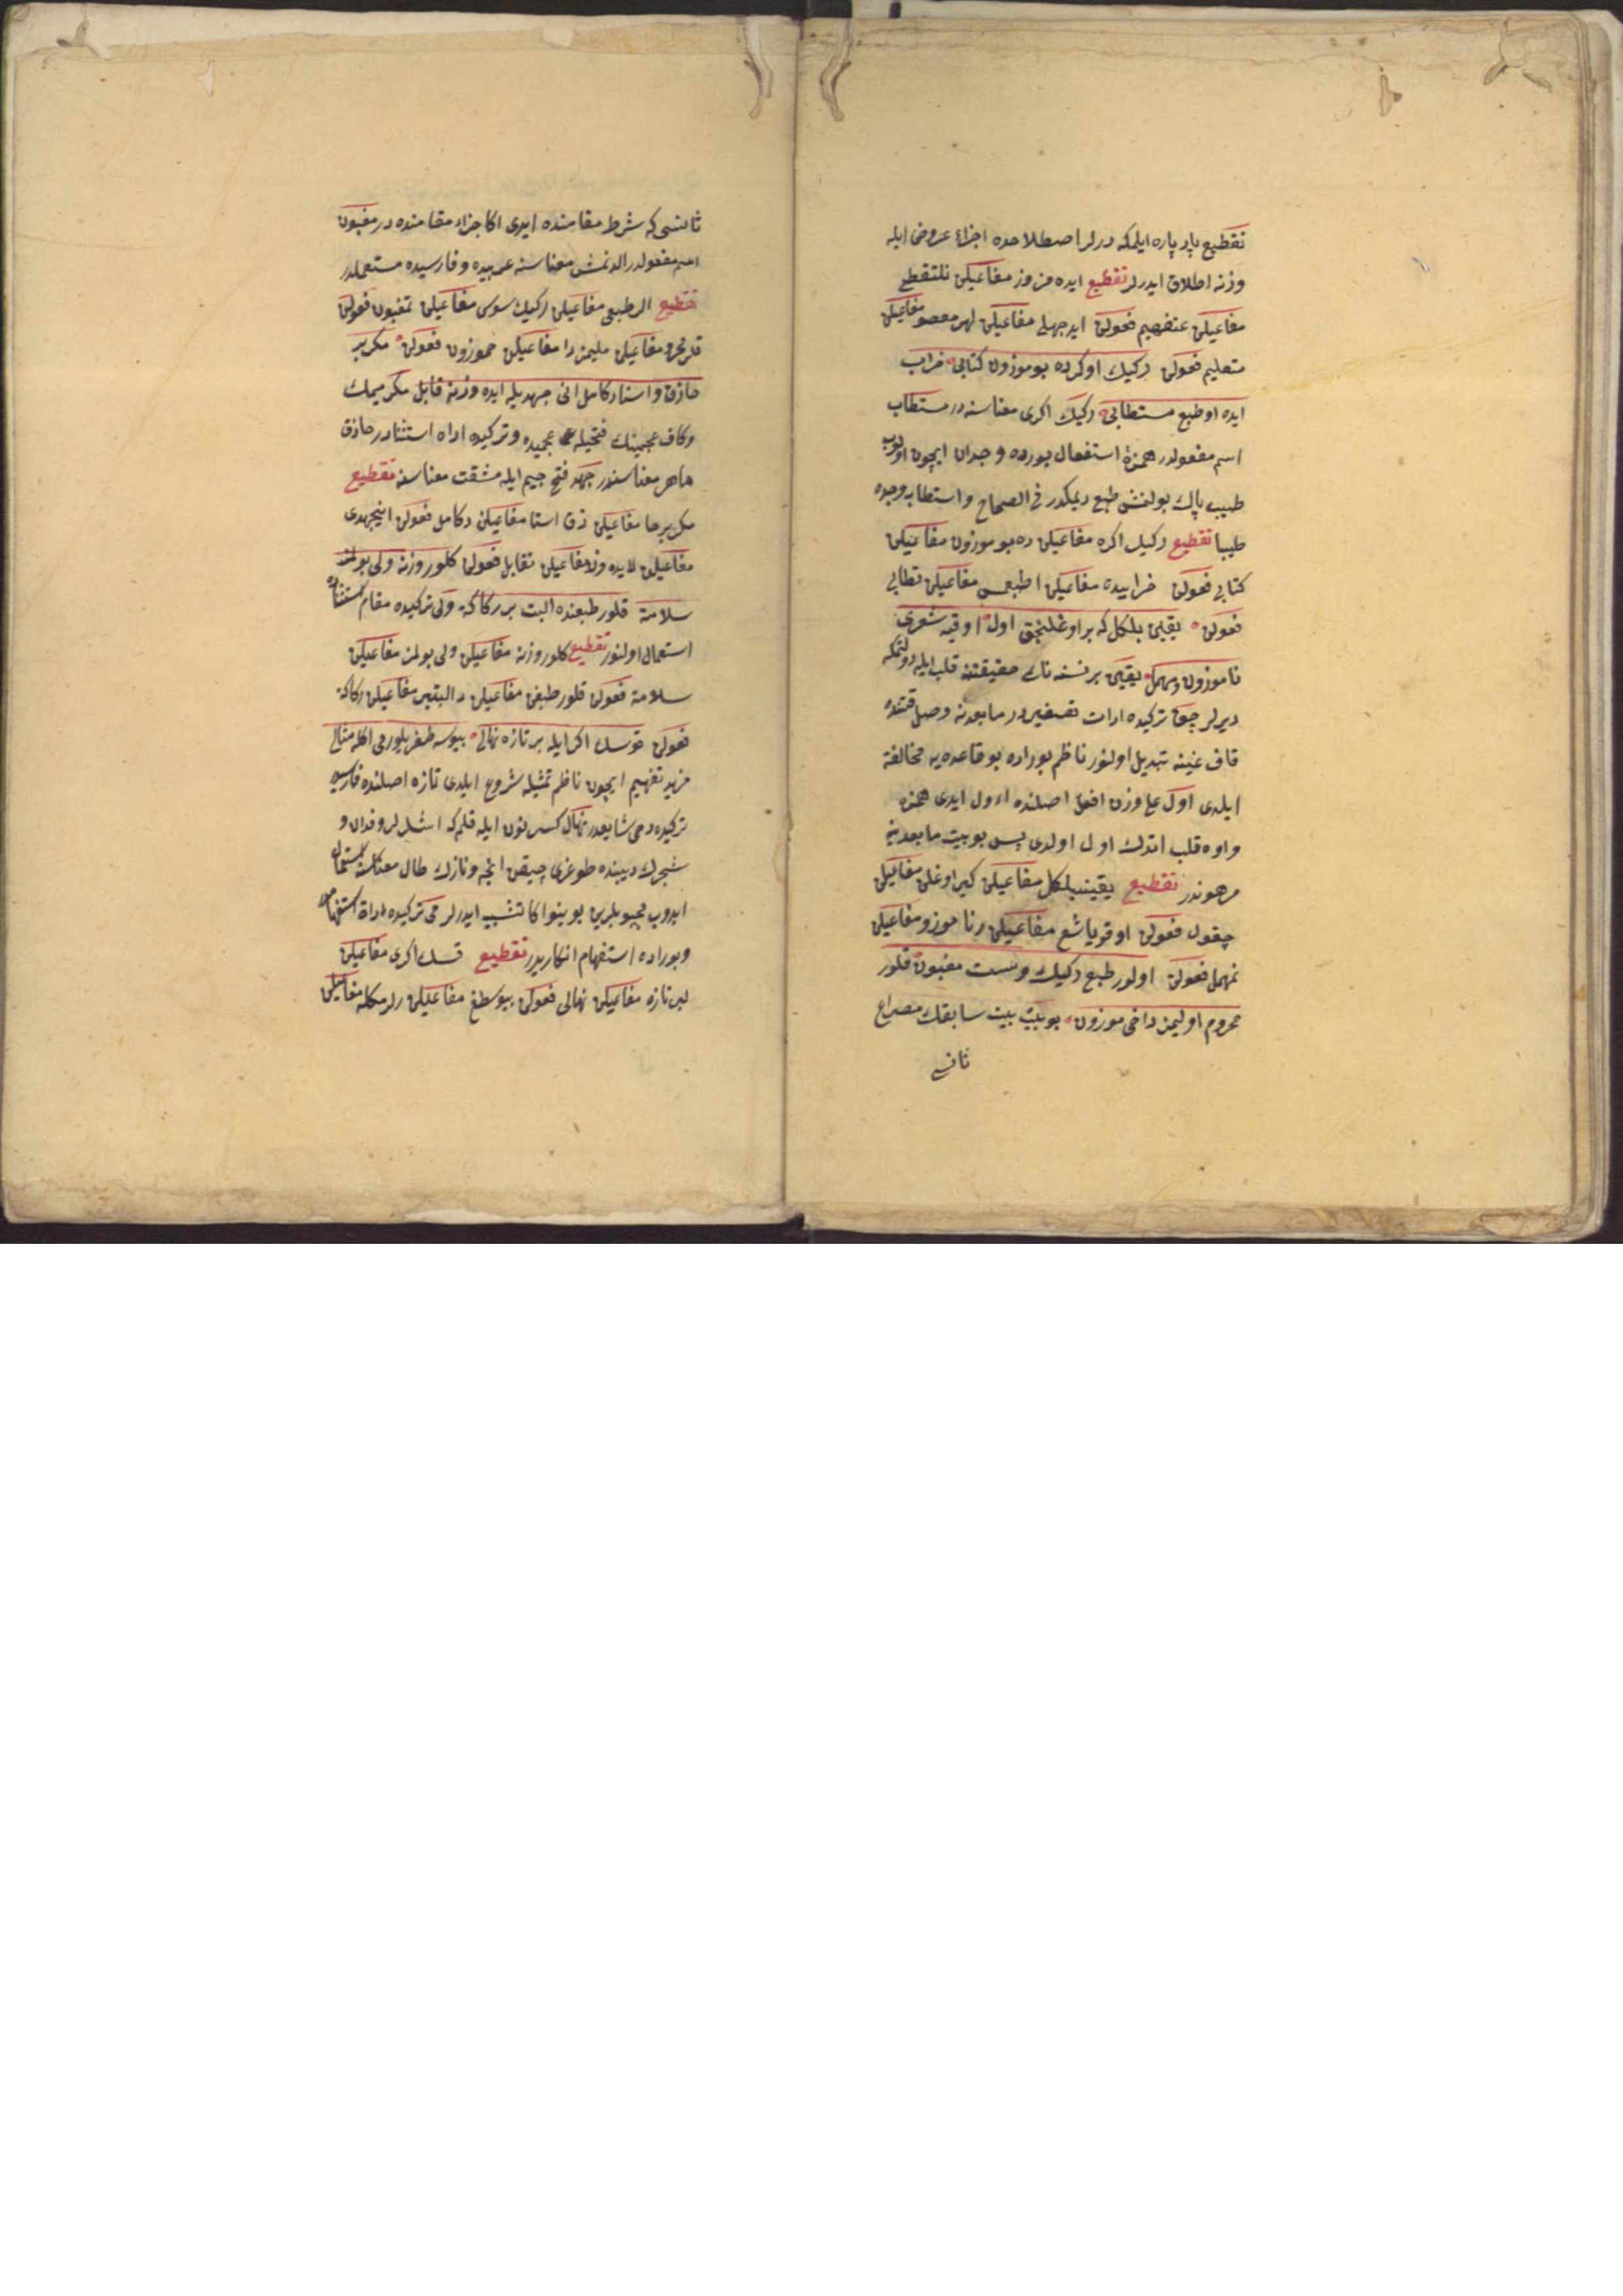 تقطيع پاره پاره ايلمكه درلر اصطلاحده اجزاء عروض ايله
وزنه اطلاق ايدرلر تقطيع ايده من وز مفاعيلن نلتقطع
مفاعيلن عتفهيم فعولن ايدجهلى مفاعيلن لهر مقصو مفاعيلن
متعليم فعولن ركيك اوكرده بو موزون كتابى خراب
ايده او طبع مستطابى ركيك اكرى معناسنه در مستطاب
اسم مفعولدر همزهٔ استفعال بورده وجدان ايچون اولوب
طيب پاك بولنمش طبع ديمكدر فى الصحاح و استطابه وجده
طيبا تقطيع ركيك اكره مفاعيلن ده بو موزون مفاعيلن
كتابى فعولن خرابيده مفاعيلن اطبعمس مفاعيلن تطابى
فعولن يقين بلكل كه بر اوغلنجق اول اوقيه شعرى
ناموزون و مهمل يقين بر نسنه نك حقيقتنه قلب ايله دولنمكه
ديرلر جق تركيده ادات تصغيردر مابعدنه وصل وقتنده
قاف غينه تبديل اولنور ناظم بوراده بو قاعده يه مخالفة
ايلدى اول على وزن افعل اصلنده اءول ايدى همزه
واوه قلب اتدك اول اولدى پس بو بيت مابعدينه
مرهوندر تقطيع يقينبلكل مفاعيلن كبر اوغلن مفاعيلن
جقول فعولن اوقوياشع مفاعيلن رنا موزو مفاعيلن
نمهمل فعولن اولور طبع ركيك و سست مغبون قلور
محروم اوليمز داخى موزون بو بيت بيت سابقك مصراع
ثانى
ثانيسى كه شرط مقامنده ايدى اكا جزاء مقامنده در مغبون
اسم مفعولدر الدنمش معناسنه عربيده و فارسيده مستعملدر
تقطيع الر طبعى مفاعيلن ركيك سوس مفاعيلن تمغبون فعولن
قلر محرو مفاعيلن مليمز دا مفاعيلن خموزون فعولن مكر بر
حاذق و استاد كامل انى جهديله ايده وزنه قابل مكر ميمك
و كاف عجمينك فتحيله عجميده و تركيده اداه استثنادر حاذق
ماهر معناسنه در جهد فتح جيم ايله مشقت معناسنه تقطيع
مكر برحا مفاعيلن ذق استا مفاعيلن دكامل فعولن انيجهدى
مفاعيلن لايده وزنه مفاعيلن نقابل فعولن كلور وزنه ولى بولمز
سلامة قلور طبعنده البت بر ركاكة ولى تركيده مقام استثناده
استعمال اولنور تقطيع كلور وزنه مفاعيلن ولى بولمز مفاعيلن
سلامة فعولن قلور طبعن مفاعيلن ده البتبر مفاعيلن ركاكة
فعولن قوسك اكر ايله بر تازه نهالى بيوسه طغر يلورمى اكله مثالى
مزيد تفهيم ايچون ناظم تمثيله شروع ايلدى تازه اصلنده فارسيدر
تركيده دخى شايعدر نهال كسر نون ايله قلمكه اشلرلر و فدان و
شجرك ديبنده طوغرى چيقن انجه و نازك طال معناسنه استعمال
ايدوب محبوبلرين بوينو اكا تشبيه ايدرلر مى تركيده اداة استفهامدر
و بوراده استفهام انكاريدر تقطيع قسك اكرى مفاعيلن
لبر تازه مفاعيلن نهالى فعولن بيوسطغ مفاعيلن رلرمكله مفاعيلن